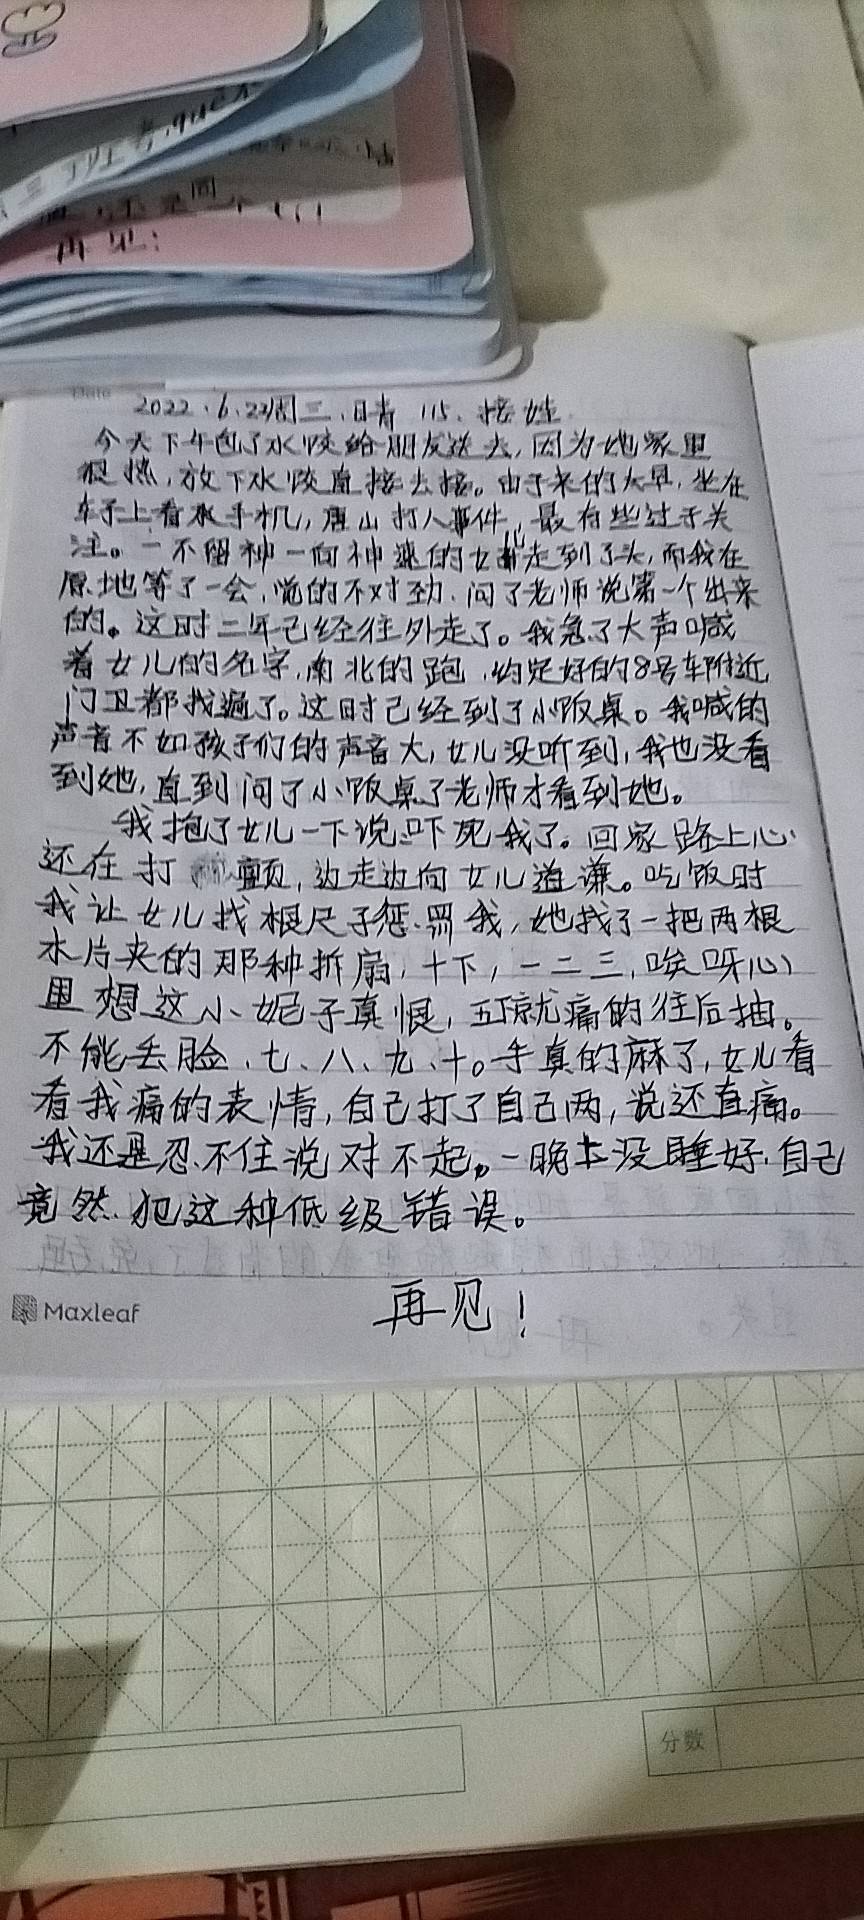 再见:
2022.6.22周三.晴 115.接娃
今天下午包了水饺给朋友送去,因为她家里
很热,放下水饺直接去接。由于来的太早,坐在
车子上看永手机,唐山打人事件,最有些过于关
注。一不留神一向神速的女儿走到了头,而我在
原地等了一会,觉的不对劲.问了老师说第一个出来
的。这时二年已经往外走了。我急了大声喊
着女儿的名字,南北的跑,约定好的8号车附近,
门卫都找遍了。这时已经到了小饭桌。我喊的
声音不如孩子们的声音大,女儿没听到,我也没看
到她,直到问了小饭桌了老师才看到她。
我抱了女儿一下说:吓死我了。回家路上心
还在打颤,边走边向女儿道谦。吃饭时
我让女儿找根尺子惩罚我,她找了一把两根
木片夹的那种折扇,十下,一二三,唉呀心
里想这小妮子真恨,五下就痛的往后抽。
不能丢脸.七、八、九、十。手真的麻了,女儿看
看我痛的表情,自己打了自己两,说还直痛。
我还是忍不住说对不起。一晚上没睡好.自己
竟然犯这种低级错误。
再见!
Maxleaf
分数